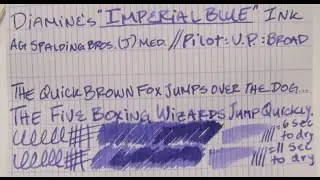 Diamine's "Imperial Blue" Ink
AG Spalding Bros. (J) Med. // Pilot: V.P.: Broad
The Quick Brown Fox Jumps Over The Dog...
The Five Boxing Wizards Jump Quickly.
=6 sec to dry
=11 sec to dry